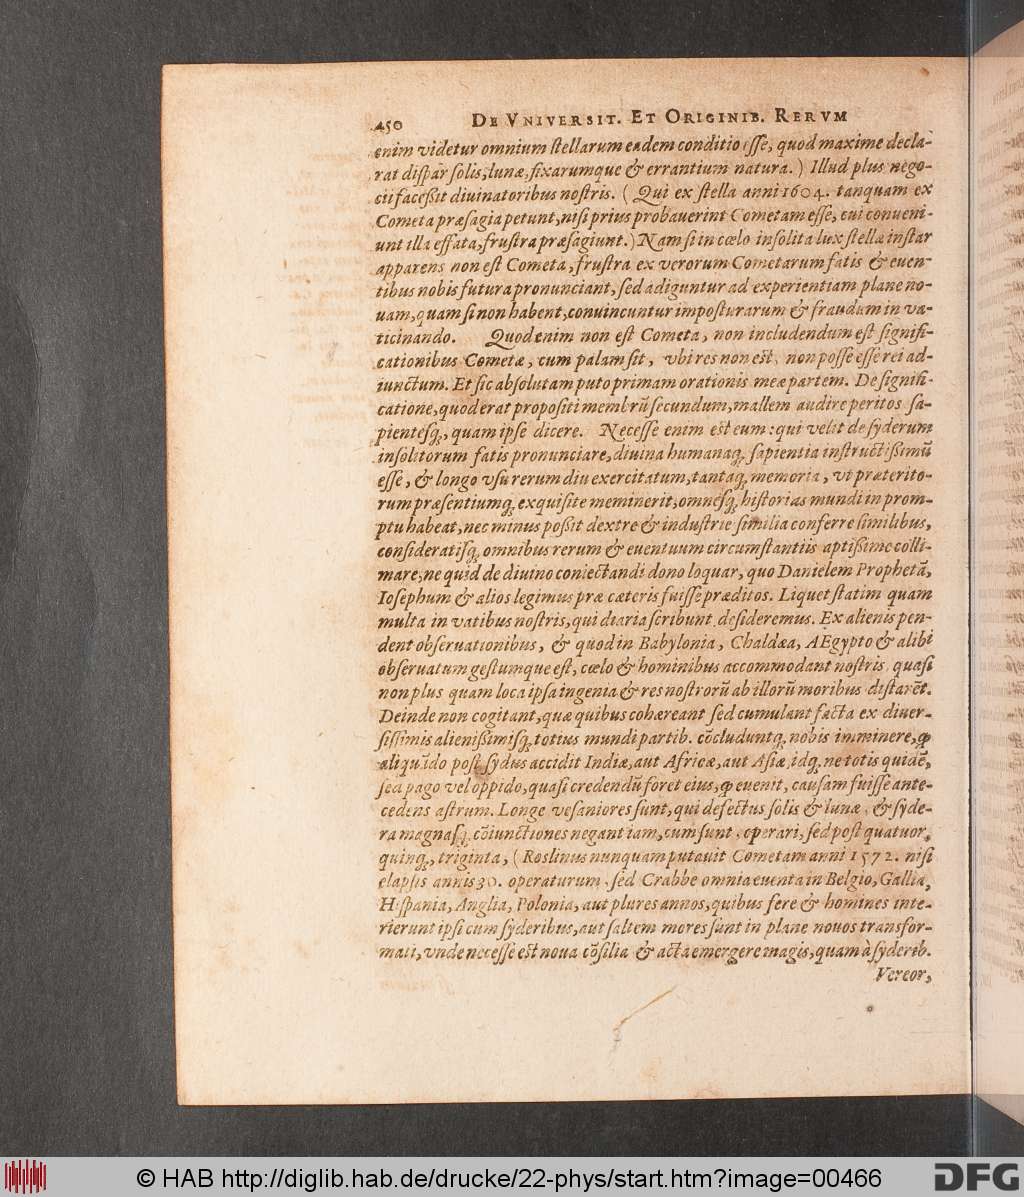 450 DE VNIVERSIT. ET ORIGINIB. RERVM
enim videtur omnium stellarum eadem conditio esse, quod maxime decla-
rat dispar solis, lunæ, fixarumque & errantium natura. ) Illud plus nego-
cii facessit diuinatoribus nostris. ( Qui ex stella anni 1604. tanquam ex
Cometa præsagia petunt, nisi prius probauerint Cometam esse, cui conueni-
unt illa effata, frustra præsagiunt.) Nam si in cœlo insolita lux stellæ instar
apparens non est Cometa, frustra ex verorum Cometarum fatis & euen-
tibus nobis futura pronunciant, sed adiguntur ad experientiam plane no-
uam, quam si non habent, conuincuntur imposturarum & fraudum in va-
ticinando. Quod enim non est Cometa, non includendum est signifi-
cationibus Cometæ, cum palam sit, vbi res non est, non posse esse rei ad-
iunctum. Et sic absolutam puto primam orationis meæ partem. De signifi-
catione, quod erat propositi membrũ secundum, mallem audire peritos sa-
pientesq;, quam ipse dicere. Necesse enim est eum: qui velit de syderum
insolitorum fatis pronunciare, diuina humanaq; sapientia instructissimũ
esse, & longo vsu rerum diu exercitatum, tantaq; memoria, vt præterito-
rum præsentiumq; exquisite meminerit, omnesq; historias mundi in prom-
ptu habeat, nec minus possit dextre & industrie similia conferre similibus,
consideratisq; omnibus rerum & euentuum circumstantiis aptissime colli-
mare, ne quid de diuino coniectandi dono loquar, quo Danielem Prophetã,
Iosephum & alios legimus præ cæteris fuisse præditos. Liquet statim quam
multa in vatibus nostris, qui diaria scribunt desideremus. Ex alienis pen-
dent obseruationibus, & quod in Babylonia, Chaldæa, AEgypto & alibi
obseruatum gestumque est, cœlo & hominibus accommodant nostris, quasi
non plus quam loca ipsa ingenia & res nostrorũ ab illorũ moribus distarẽt.
Deinde non cogitant, quæ quibus cohæreant sed cumulant facta ex diuer-
sissimis alienissimisq; totius mundi partib. cõcluduntq; nobis imminere, ꝙ
aliquãdo post sydus accidit Indiæ, aut Africæ, aut Asiæ, idq; ne totis quidẽ,
sed pago vel oppido, quasi credendũ foret eius, ꝙ euenit, causam fuisse ante-
cedens astrum. Longe vesaniores sunt, qui defectus solis & lunæ, & syde-
ra magnasq; cõiunctiones negant iam, cum sunt, operari, sed post quatuor,
quinq;, triginta, ( Roslinus nunquam putauit Cometam anni 1572. nisi
elapsis annis 30. operaturum, sed Crabbe omnia euenta in Belgio, Gallia,
Hispania, Anglia, Polonia, aut plures annos, quibus fere & homines inte-
rierunt ipsi cum syderibus, aut saltem mores sunt in plane nouos transfor-
mati, vnde necesse est noua cõsilia & acta emergere magis, quam à syderib.
Vereor,
© HAB http://diglib.hab.de/drucke/22-phys/start.htm?image=00466
DFG